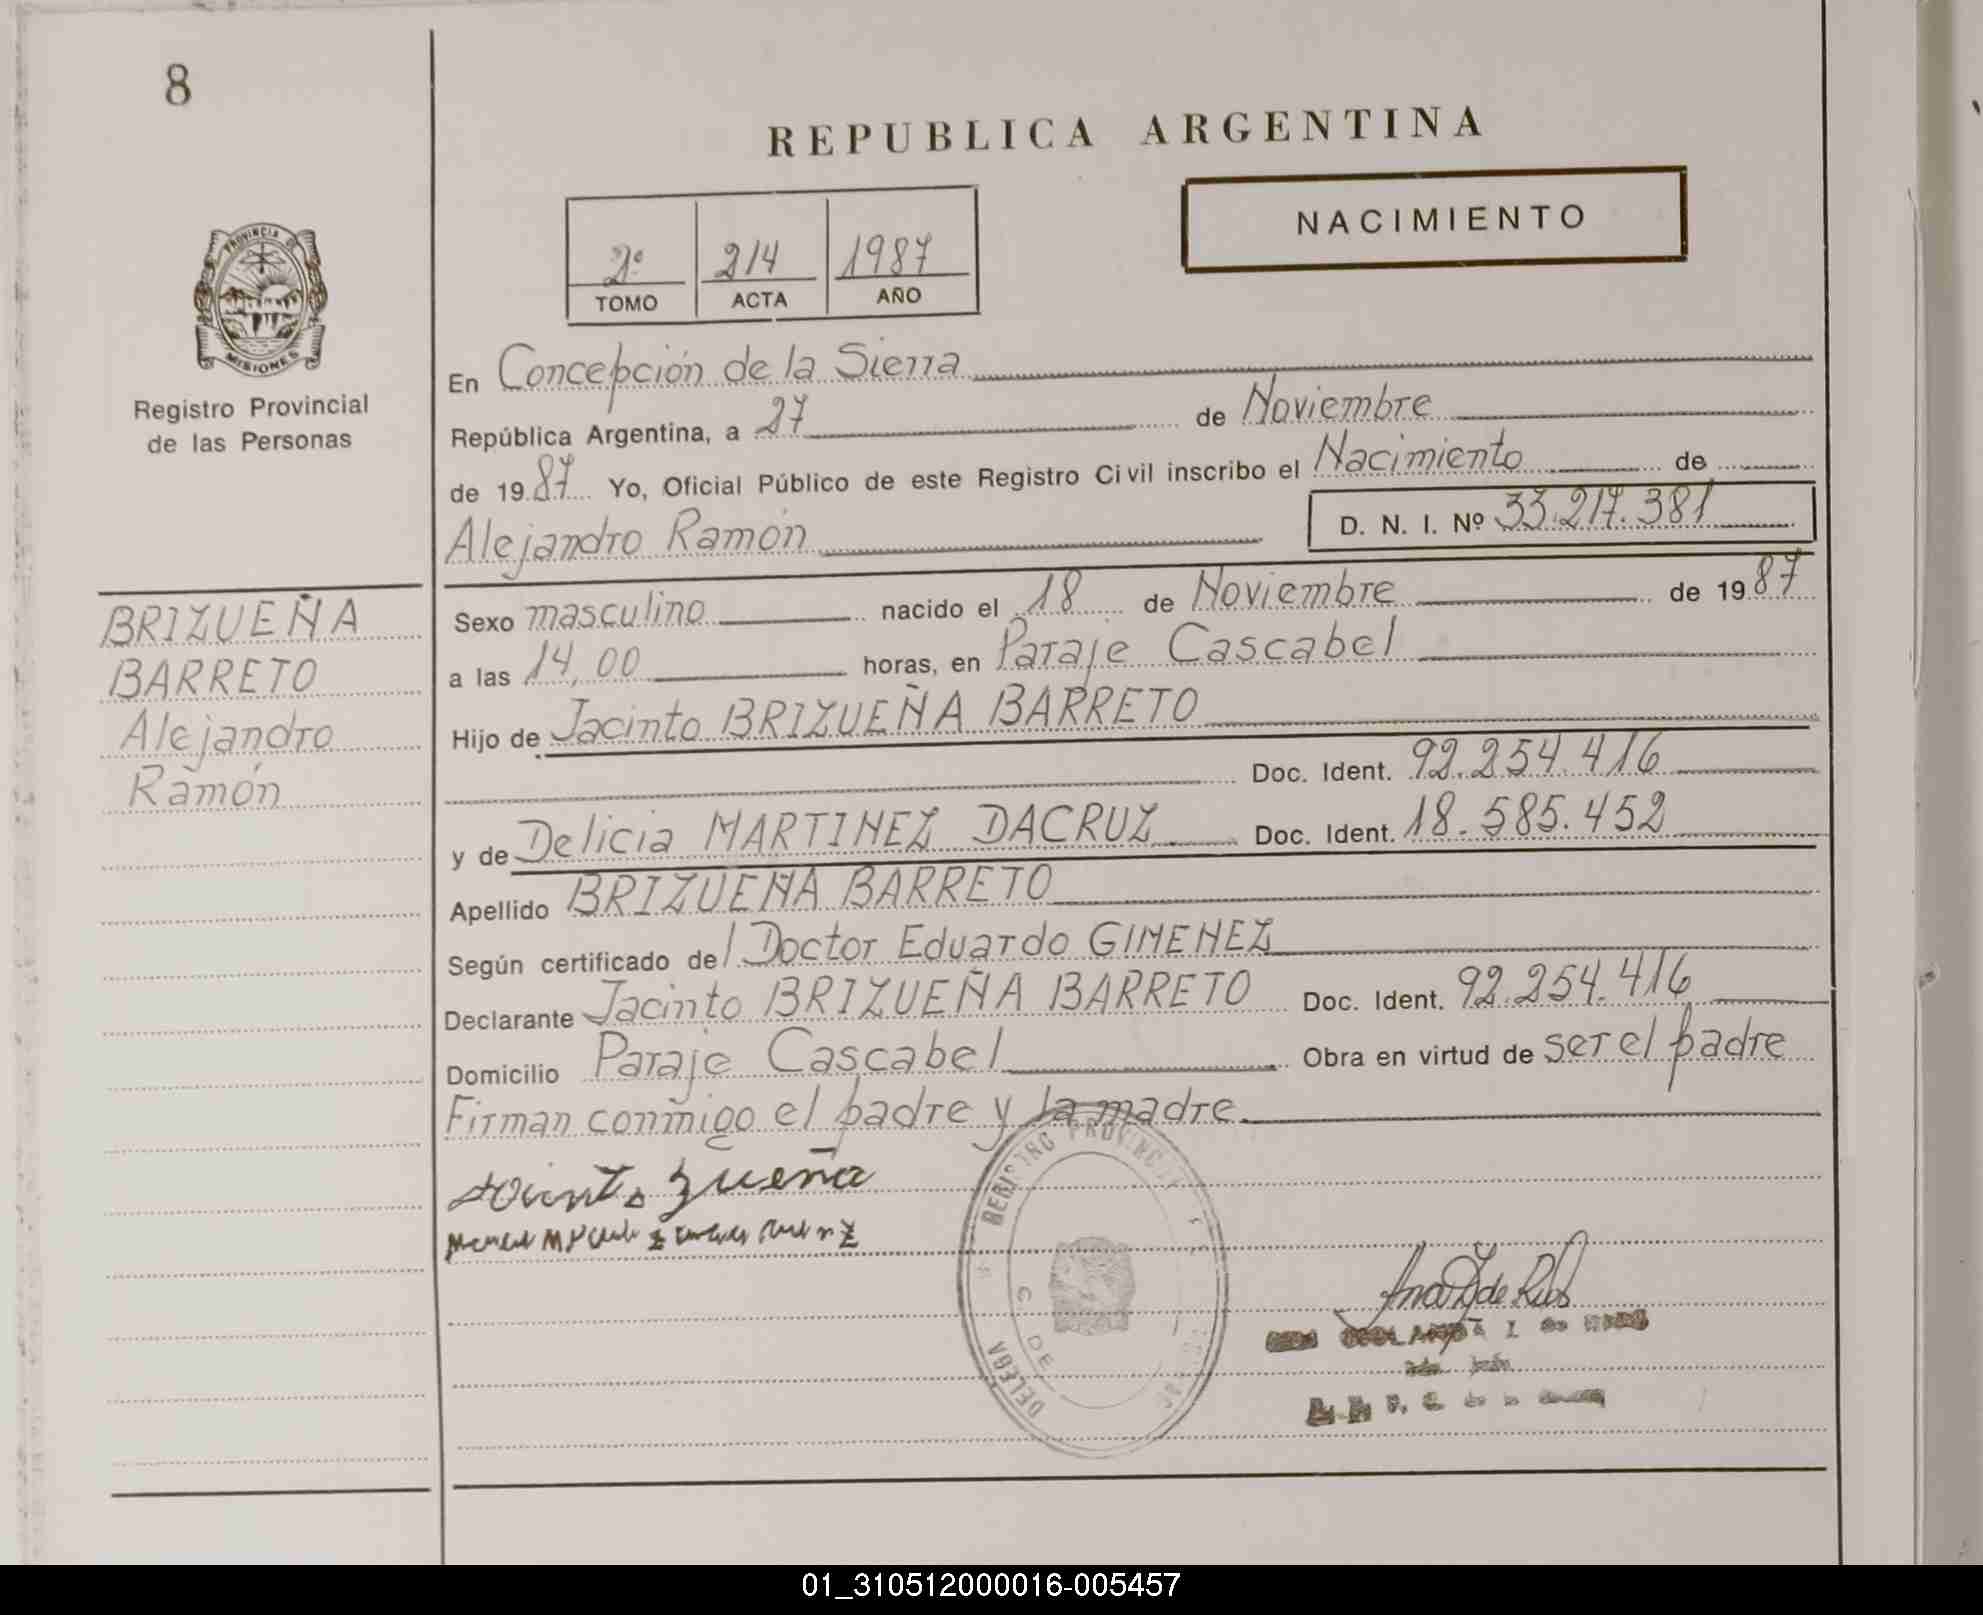 8
REPUBLICA ARGENTINA
NACIMIENTO
2º 214 1987
TOMO ACTA AÑO
PROVINCIA DE
MISIONES
Registro Provincial
de las Personas
En Concepción de la Sierra
República Argentina, a 27 de Noviembre
de 1987 Yo, Oficial Público de este Registro Civil inscribo el Nacimiento de
Alejandro Ramón D. N. I. Nº 33.217.381
BRIZUEÑA
BARRETO
Alejandro
Ramón
Sexo masculino nacido el 18 de Noviembre de 1987
a las 14,00 horas, en Paraje Cascabel
Hijo de Jacinto BRIZUEÑA BARRETO
Doc. Ident. 92.254.416
y de Delicia MARTINEZ DACRUZ Doc. Ident. 18.585.452
Apellido BRIZUEÑA BARRETO
Según certificado del Doctor Eduardo GIMENEZ
Declarante Jacinto BRIZUEÑA BARRETO Doc. Ident. 92.254.416
Domicilio Paraje Cascabel Obra en virtud de ser el padre
Firman conmigo el padre y la madre.
REGISTRO PROVINCIAL
DELEGA
C. DE
01_310512000016-005457